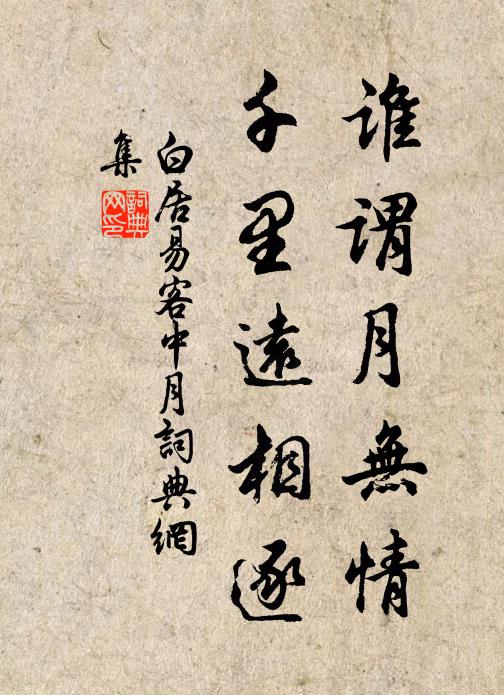 誰謂月無情
千里遠相逐
白居易客中月詞典網
集
詞典
网印